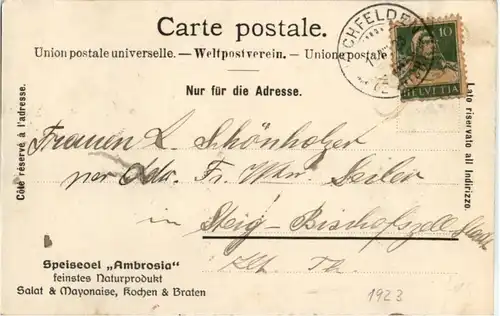 Carte postale.
Union postale universelle. — Weltpostverein. — Unione postale
CHFELDE
10
HELVETIA
Nur für die Adresse.
Côté réservé à l'adresse.
Lato riservato all Indirizzo.
Frauen L. Schönholzer
per Adr. Fr. Wwr. Seiler
in Steig-Bischofszell Stadt
Kt. Th.
Speiseoel „Ambrosia"
feinstes Naturprodukt
Salat & Mayonaise, Kochen & Braten
1923